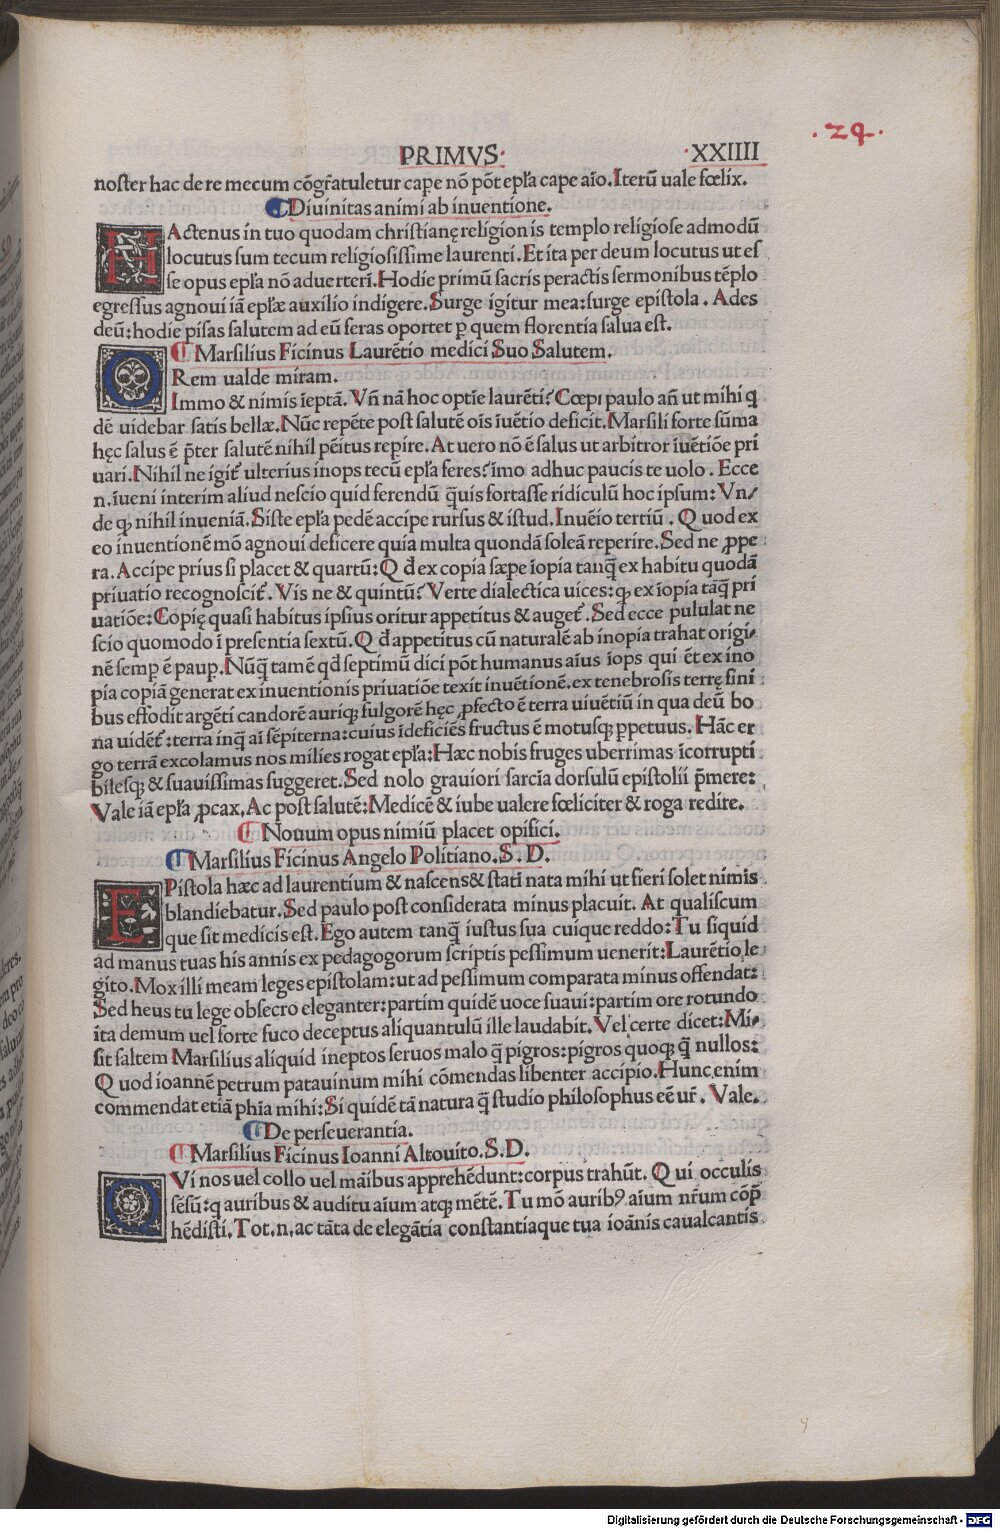 .24.
PRIMVS· ·XXIIII
noster hac de re mecum cōgr̄atuletur cape nō pōt epl̄a cape aīo. Iterū uale fœlix.
Diuinitas animi ab inuentione.
HActenus in tuo quodam christianę religionis templo religiose admodū
locutus sum tecum religiosissime laurenti. Et ita per deum locutus ut es
se opus epl̄a nō aduerterī. Hodie primū sacris peractis sermonibus tēplo
egressus agnoui iā epl̄æ auxilio indigere. Surge igitur mea: surge epistola. Ades
deū: hodie pīsas salutem ad eū feras oportet p quem florentia salua est.
Marsilius Ficinus Laurētio medici Suo Salutem.
ORem ualde miram.
Immo & nimis īeptā. Vn̄ nā hoc optīe laurēti? Cœpi paulo an̄ ut mihi q
dē uidebar satis bellæ. Nūc repēte post salutē oīs īuētio deficit. Marsili forte sūma
hęc salus ē p̄ter salutē nihil pēitus repire. At uero nō ē salus ut arbitror īuētiōe pri
uari. Nihil ne igit̄ ulterius inops tecū epl̄a feres? īmo adhuc paucis te uolo. Ecce
n. īueni interim aliud nescio quid ferendū q̄uis fortasse ridiculū hoc ipsum: Vn/
de ꝙ nihil inueniā. Siste epl̄a pedē accipe rursus & istud. Inuēio tertiū. Quod ex
eo inuentionē mō agnoui deficere quia multa quondā soleā reperire. Sed ne ꝓpe
ra. Accipe prius si placet & quartū: Qd̄ ex copia sæpe īopia tanq̄ ex habitu quodā
priuatio recognoscit̄. Vis ne & quintū? Verte dialectica uices: ꝙ ex īopia tāq̄ pri
uatiōe: Copię quasi habitus ipsius oritur appetitus & auget̄. Sed ecce pululat ne
scio quomodo ī presentia sextū. Qd̄ appetitus cū naturalē ab inopia trahat origi/
nē semp ē paup. Nūq̄ tamē qd̄ septimū dici pōt humanus aīus īops qui ēt ex ino
pia copiā generat ex inuentionis priuatiōe texit inuētionē. ex tenebrosis terrę sini
bus effodit argēti candorē auriqꝫ fulgorē hęc ꝓfecto ē terra uiuētiū in qua deū bo
na uidēt̄: terra inq̄ aī sēpiterna: cuius īdeficiēs fructus ē motusqꝫ ppetuus. Hāc er
go terrā excolamus nos milies rogat epl̄a: Hæc nobis fruges uberrimas īcorrupti
bilesqꝫ & suauissimas suggeret. Sed nolo grauiori sarcīa dorsulū epistolii p̄mere:
Vale iā epl̄a ꝓcax. Ac post salutē: Medicē & iube ualere fœliciter & roga redire.
Nouum opus nimiū placet opifici.
Marsilius Ficinus Angelo Politiano. S. D.
EPistola hæc ad laurentium & nascens & statī nata mihi ut fieri solet nimis
blandiebatur. Sed paulo post considerata minus placuit. At qualiscum
que sit medicis est. Ego autem tanq̄ iustus sua cuique reddo: Tu siquid
ad manus tuas his annis ex pedagogorum scriptis pessimum uenerit: Laurētio le
gito. Mox illi meam leges epistolam: ut ad pessimum comparata minus offendat:
Sed heus tu lege obsecro eleganter: partim quidē uoce suaui: partim ore rotundo
ita demum uel forte fuco deceptus aliquantulū ille laudabit. Vel certe dicet: Mi/
sit saltem Marsilius aliquid ineptos seruos malo q̄ pigros: pigros quoqꝫ q̄ nullos:
Quod ioannē petrum patauinum mihi cōmendas libenter accipio. Hunc enim
commendat etiā phīa mihi: Si quidē tā natura q̄ studio philosophus eē ur̄. Vale.
De perseuerantia.
Marsilius Ficinus Ioanni Altouito. S. D.
QVi nos uel collo uel māibus apprehēdunt: corpus trahūt. Qui occulis
sēsū: q auribus & auditu aīum atqꝫ mētē. Tu mō auribꝰ aīum nr̄um cōp̄
hēdisti. Tot. n. ac tāta de elegātia constantiaque tua ioānis caualcantis
Digitalisierung gefördert durch die Deutsche Forschungsgemeinschaft - DFG